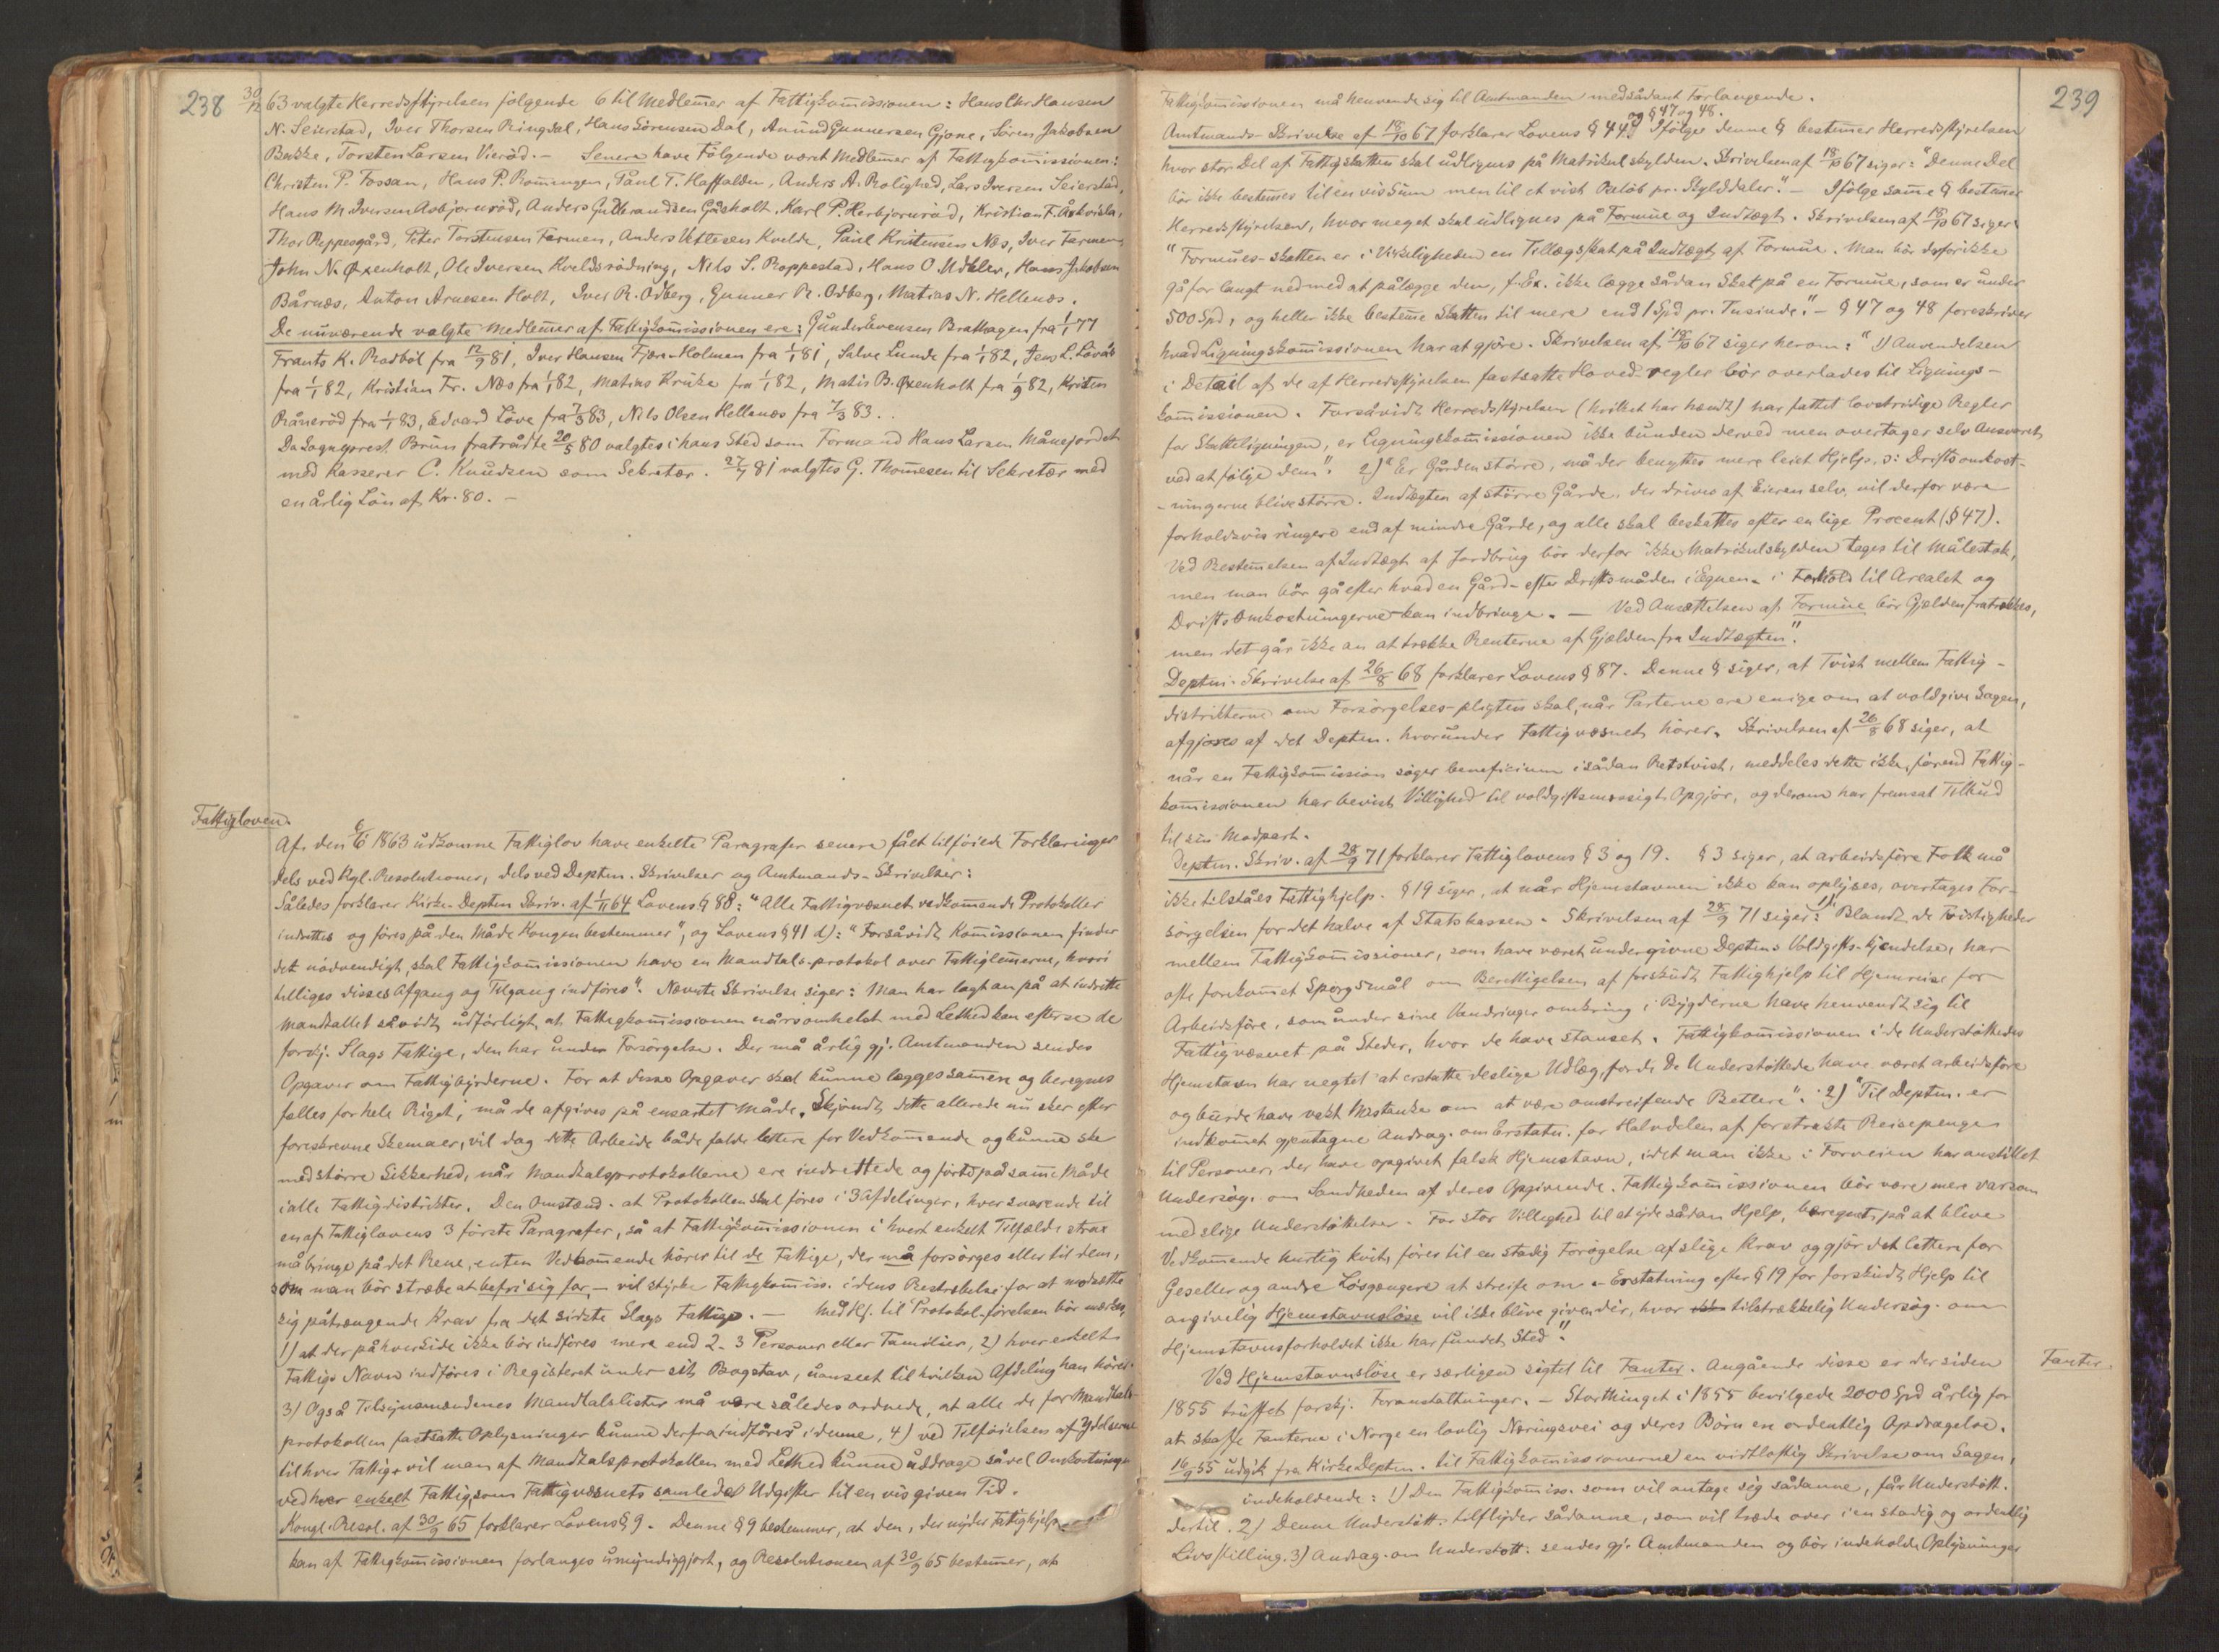 238
30/12 63 valgte Herredsstyrelsen følgende 6 til Medlem̄er af Fattigkom̄issionen: Hans Chr. Hansen
N. Seierstad, Iver Thorsen Ringdal, Hans Sörensen Dal, Anund Gunnersen Gjone, Sören Jakobsen
Bakke, Torsten Larsen Vieröd. — Senere have Fölgende været Medlem̄er af Fattigkom̄issionen:
Christen P. Fossan, Hans P. Rom̄ingen, Paul T. Haffalden, Anders A. Rolighed, Lars Iversen Seierstad,
Hans M. Iversen Asbjørnröd, Anders Gulbrandsen Gåsholt, Karl P. Herbjørnröd, Kristian F. Åsbvisla,
Thor Reppesgård, Peter Torstensen Farmen, Anders Vettesen Kvelde, Paul Kristensen Næs, Iver Farmen,
John N. Øxenholt, Ole Iversen Kveldsrödning, Nils S. Roppestad, Hans O. Udklev, Hans Jakobsen
Bårnæs, Anton Arnesen Holt, Iver R. Odberg, Gunner R. Odberg, Matias N. Hellenæs.
De nuværende valgte Medlem̄er af Fattigkom̄issionen ere: Gunder Evensen Brathagen fra 1/1 77
Frants K. Rødböl fra 12/9 81, Iver Hansen Fjære-Holmen fra 1/1 81, Salve Lunde fra 1/1 82, Jens L. Lövås
fra 1/1 82, Kristian Fr. Næs fra 1/1 82, Matias Kruke fra 1/1 82, Matis B. Øxenholt fra 1/9 82, Kristen
Råneröd fra 1/1 83, Edvard Löve fra 7/3 83, Nils Olsen Hellenæs fra 7/3 83.
Da Sogneprest Bruun fratrådte 20/5 80 valgtes i hans Sted som Formand Hans Larsen Månejordet
med Kasserer C. Knudsen som Sekretær. 27/7 81 valgtes G. Thom̄esen til Sekretær med
en årlig Lön af Kr. 80. —
Fattigloven.
Af den 6/6 1863 udkomne Fattiglov have enkelte Paragrafer senere fået tilföiede Forklaringer
dels ved Kgl. Resolutioner, dels ved Deptm. Skrivelser og Amtmands-Skrivelser:
Således forklarer Kirke-Deptm Skriv. af 1/11 64 Lovens § 88: "Alle Fattigvæsnet vedkom̄ende Protokoller
indrettes og föres på den Måde Kongen bestemmer", og Lovens § 41 d): "Forsåvidt Kom̄issionen finder
det nödvendigt, skal Fattigkom̄issionen have en Mandtals-protokol over Fattiglem̄erne, hvori
tilliges disses Afgang og Tilgang indföres". Nævnte Skrivelse siger: Man har lagt an på at indrette
Mandtallet såvidt udförligt, at Fattigkom̄issionen nårsomhelst med Lethed kan efterse de
forskj. Slags Fattige, den har under Forsörgelse. Der må årlig gj. Amtmanden sendes
Opgaver om Fattigbyrderne. For at disse Opgaver skal kunne lægges sam̄en og beregnes
fælles for hele Riget, må de afgives på ensartet Måde. Skjöndt dette allerede nu sker efter
foreskrevne Skemaer, vil dog dette Arbeide både falde lettere for Vedkom̄ende og kunne ske
med större Sikkerhed, når Mandtalsprotokollerne ere indrettede og förte på sam̄e Måde
i alle Fattigdistrikter. Den Omstænd. at Protokollen skal föres i 3 Afdelinger, hver svarende til
en af Fattiglovens 3 förste Paragrafer, så at Fattigkom̄issionen i hvert enkelt Tilfælde strax
må bringe på det Rene, enten Vedkom̄ende hörer til de Fattige, der må forsörges eller til dem,
som man bör stræbe at befri sig for, — vil styrke Fattigkom̄iss. i dens Bestrebelse for at modsætte
sig påtrængende Krav fra det sidste Slags Fattige. — Med Hj. til Protokol-förelsen bör mærkes,
1) at der på hver Side ikke bör indföres mere end 2-3 Personer eller Familier, 2) hver enkelt
Fattigs Navn indföres i Registeret under sit Bogstav, uanseet til hvilken Afdeling han hörer.
3) Også Tilsynsmændenes Mandtalslister må være således ordnede, at alle de for Mandtals-
protokollen fastsatte Oplysninger kunne derfra indföres i denne, 4) ved Tilföielsen af Ydelserne
til hver Fattig, vil man af Mandtalsprotokollen med Lethed kunne uddrage såvel Omkostninger
ved hver enkelt Fattig, som Fattigvæsnets samlede Udgifter til en vis given Tid.
Kongl. Resol. af 30/9 65 forklarer Lovens § 9. Denne § 9 bestemmer, at den, der nyder Fattighjelp
kan af Fattigkom̄issionen forlanges umyndiggjort, og Resolutionen af 30/9 65 bestem̄er, at
239
Fattigkom̄issionen må henvende sig til Amtmanden med sådant Forlangende.
Amtmands-Skrivelse af 18/10 67 forklarer Lovens § 44. og § 47 og 48. Ifölge denne § bestem̄er Herredsstyrelsen
hvor stor Del af Fattigskatten skal udlignes på Matrikulskylden. Skrivelsen af 18/10 67 siger: "Denne Del
bör ikke bestem̄es til en vis Sum men til et vist Belöb pr. Skylddaler." — Ifölge sam̄e § bestem̄er
Herredsstyrelsen, hvor meget skal udlignes på Formue og Indtægt. Skrivelsen af 18/10 67 siger:
"Formues-skatten er i Virkeligheden en Tillægsskat på Indtægt af Formue. Man bör derfor ikke
gå for langt ned med at pålægge den, f. Ex. ikke lægge sådan Skat på en Formue, som er under
500 Spd, og heller ikke bestem̄e Skatten til mere end 1 Spd pr. Tusinde." — § 47 og 48 foreskriver
hvad Ligningskom̄issionen har at gjöre. Skrivelsen af 18/10 67 siger herom: "1) Anvendelsen
i Detail af de af Herredsstyrelsen fastsatte Hoved-regler bör overlades til Lignings-
kom̄issionen. Forsåvidt Herredsstyrelsen (hvilket har hændt) har fattet lovstridige Regler
for Skatteligningen, er Ligningskom̄issionen ikke bunden derved men overtager selv Ansvaret
ved at fölge dem". 2) "Er Gården större, må der benyttes mere leiet Hjelp, ɔ: Driftsomkost-
-ningerne blive större. Indtægten af större Gårde, der drives af Eieren selv, vil derfor være
forholdsvis ringere end af mindre Gårde, og alle skal beskattes efter en lige Procent (§ 47).
Ved Bestem̄elsen af Indtægt af Jordbrug bör derfor ikke Matrikulskylden tages til Målestok,
men man bör gå efter hvad en Gård - efter Driftsmåden i Egnen - i Forhold til Arealet og
Driftsomkostningerne kan indbringe. — Ved Ansættelsen af Formue bör Gjelden fratrækkes,
men det går ikke an at trække Renterne af Gjælden fra Indtægten."
Deptm. Skrivelse af 26/8 68 forklarer Lovens § 87. Denne § siger, at Tvist mellem Fattig-
distrikterne om Forsörgelses-pligten skal, når Parterne ere enige om at voldgive Sagen,
afgjores af det Deptm. hvorunder Fattigvæsnet hörer. Skrivelsen af 26/8 68 siger, at
når en Fattigkom̄ission söger beneficium i sådan Retstvist, meddeles dette ikke, förend Fattig-
kom̄issionen har bevist Villighed til voldgiftsmæssigt Opgjör, og derom har fremsat Tilbud
til sin Modpart.
Deptm. Skriv. af 28/9 71 forklarer Fattiglovens § 3 og 19. § 3 siger, at arbeidsföre Folk må
ikke tilståes Fattighjelp. § 19 siger, at når Hjemstavnen ikke kan oplyses, overtages For-
sörgelsen for det halve af Statskassen. Skrivelsen af 28/9 71 siger: 1) "Blandt de Tvistigheder
mellem Fattigkom̄issioner, som have været undergivne Deptms Voldgifts-kjendelse, har
ofte forekom̄et Spörgsmål om Berettigelsen af forskudt Fattighjelp til Hjemreise for
Arbeidsföre, som under sine Vandringer omkring i Bygderne have henvendt sig til
Fattigvæsenet på Steder, hvor de have stanset. Fattigkom̄issionen i de Understöttedes
Hjemstavn har negtet at erstatte deslige Udlæg, fordi De Understöttede have været arbeidsföre
og burde have vakt Mistanke om at være omstreifende Betlere". 2) "Til Deptm. er
indkom̄et gjentagne Andrag. om Erstatn. for Halvdelen af forstrakte Reisepenge
til Personer, der have opgivet falsk Hjemstavn, idet man ikke i Forveien har anstillet
Undersög. om Sandheden af deres Opgivende. Fattigkom̄issionen bör være mere varsom
med slige Understöttelser. For stor Villighed til at yde sådan Hjelp, beregnet på at blive
Vedkom̄ende hurtig kvit, förer til en stadig Forögelse af slige Krav og gjör det lettere for
Geseller og andre Lösgængere at streife om. - Erstatning efter § 19 for forskudt Hjelp til
angivelig Hjemstavnslöse vil ikke blive given dér, hvor tilstrækkelig Undersög. om
Hjemstavnsforholdet ikke har fundet Sted."
Ved Hjemstavnslöse er særligen sigtet til Fanter. Angående disse er der siden
Fanter.
1855 truffet forskj. Foranstaltninger. — Storthinget i 1855 bevilgede 2000 Spd årlig for
at skaffe Fanterne i Norge en lovlig Næringsvei og deres Börn en ordentlig Opdragelse.
16/9 55 udgik fra Kirke Deptm. til Fattigkom̄issionerne en vidtløftig Skrivelse om Sagen,
indeholdende: 1) Den Fattigkom̄iss. som vil antage sig sådanne, får Understött.
dertil. 2) Denne Understött. tilflyder sådanne, som vil træde over i en stadig og ordentlig
Livsstilling. 3) Andrag. om Understött. sendes gj. Amtmanden og bör indeholde Oplysninger